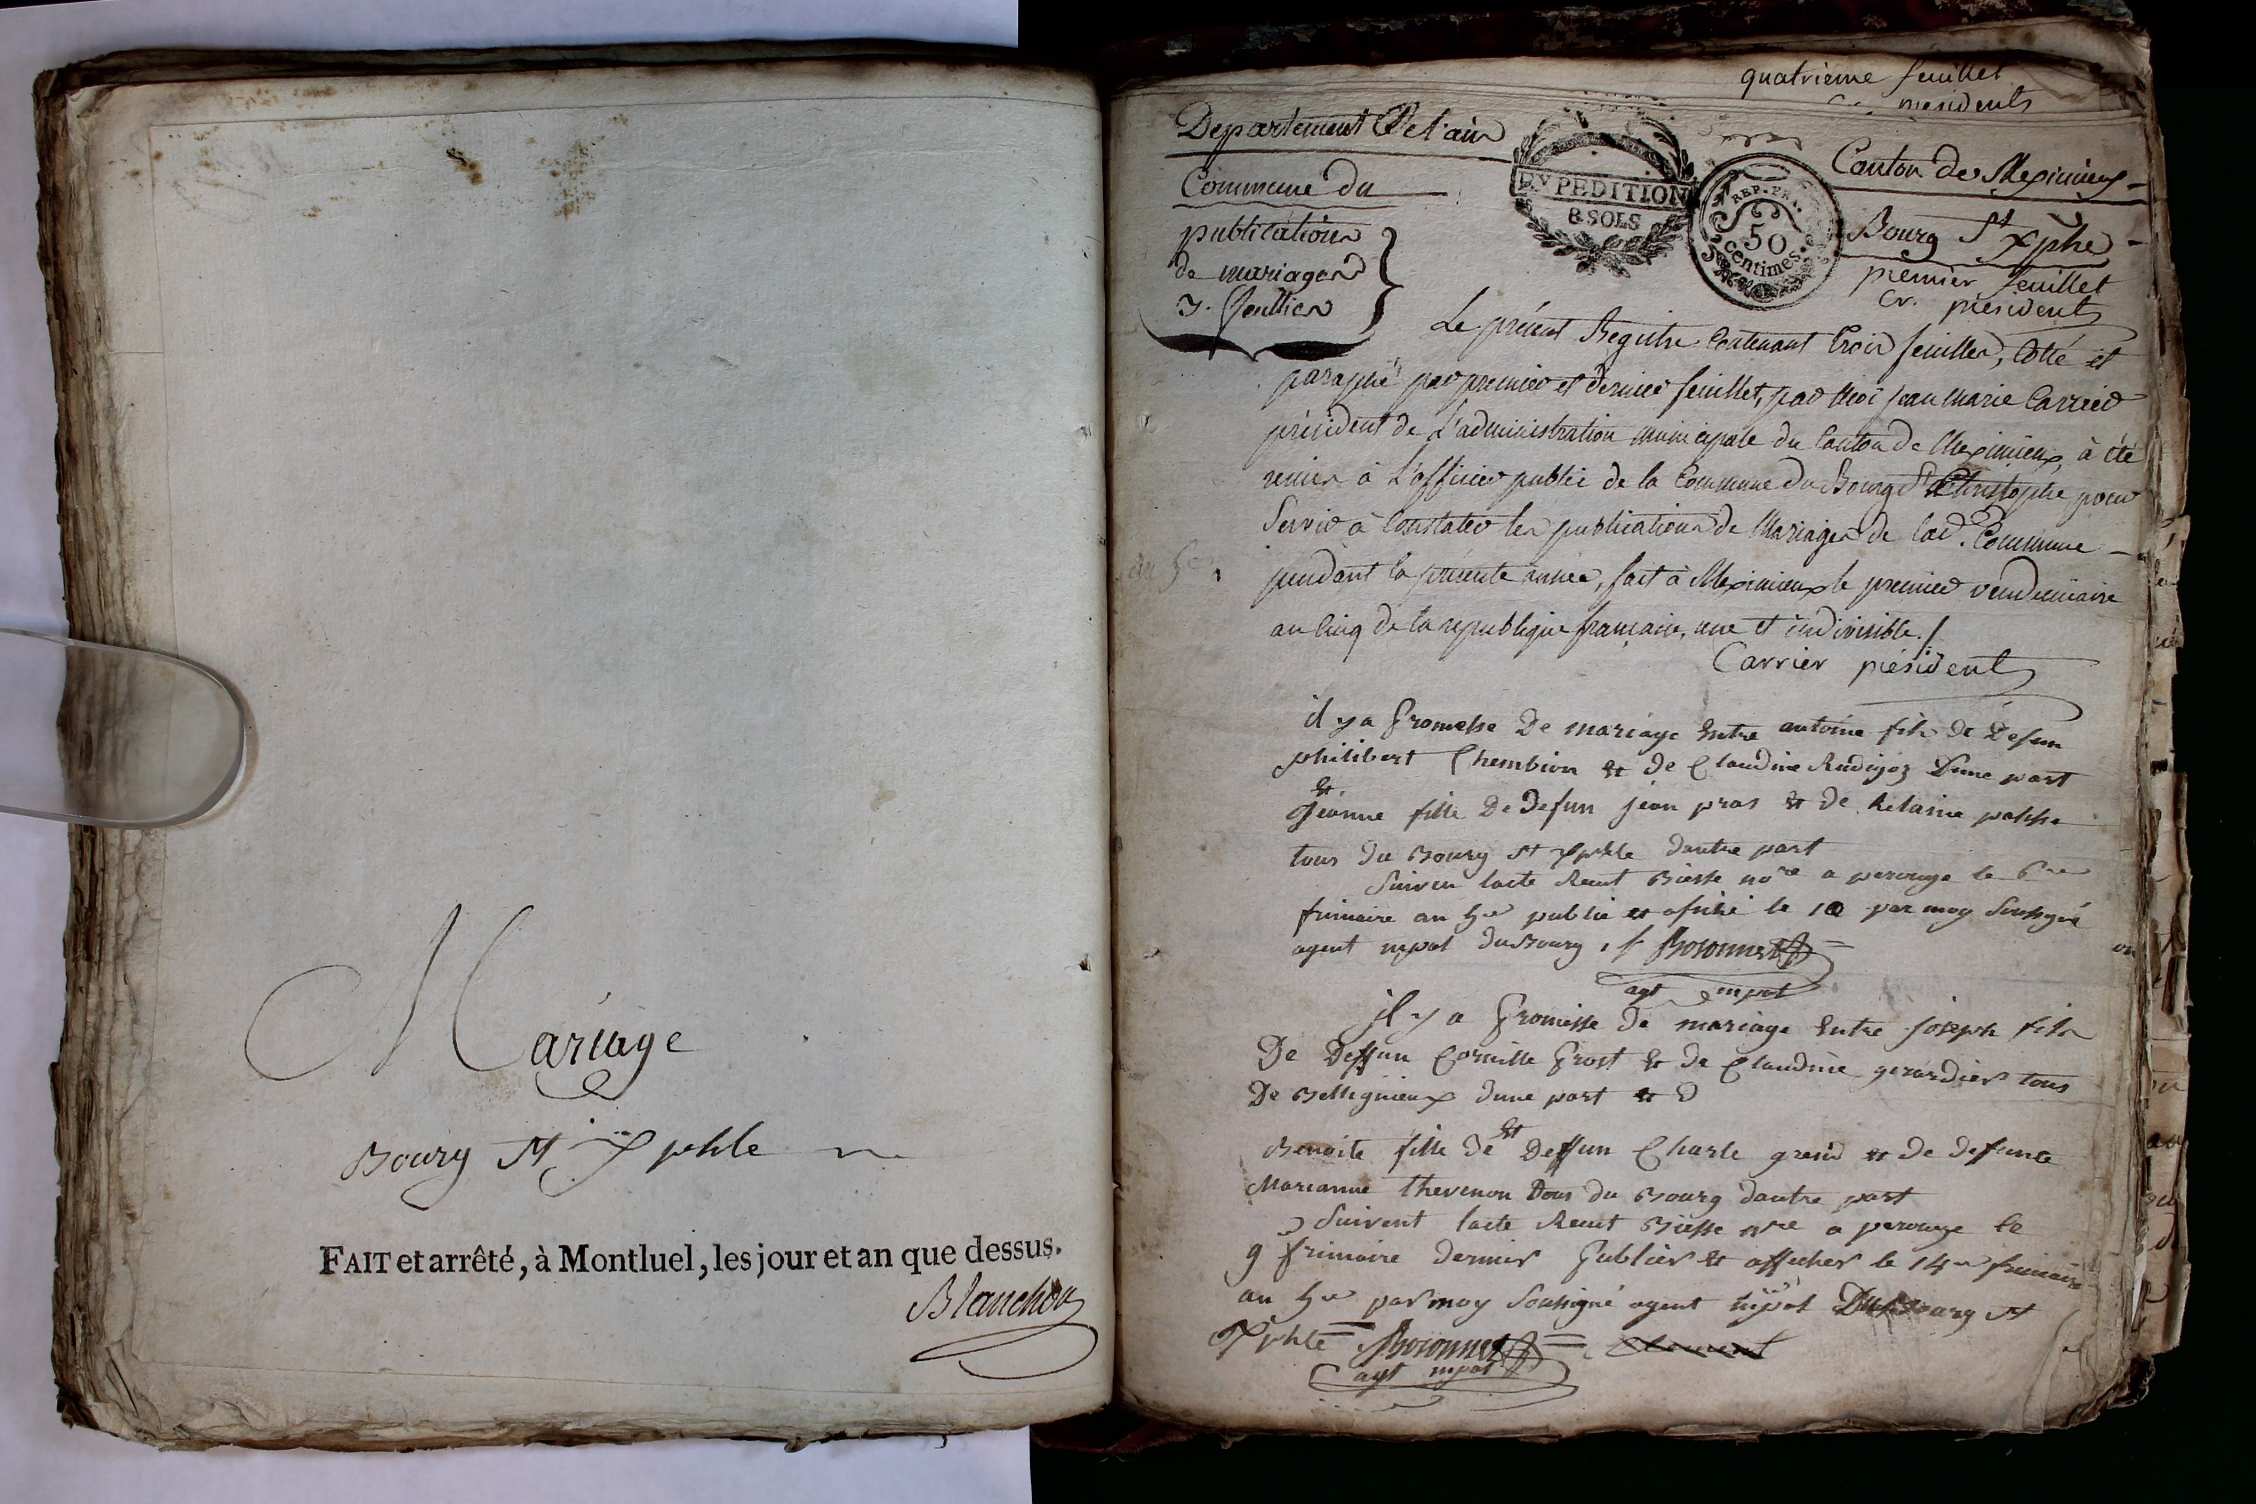 Mariage
Bourg St Xphle
FAIT et arrêté, à Montluel, les jour et an que dessus.
Blanchon
quatrieme feuillet
Cr. président
Departement De l'ain
Canton de Meximieux
Commune du
Bourg St Xphe
EXPEDITION
8 SOLS
REP. FRA.
50
centimes.
publications
de mariages
3. feuilles
premier feuillet
Cr. président
Le présent Registre Contenant trois feuilles, Cotté et
paraphé par premier et dernier feuillet, par Moi jean Marie Carrier
président de L'administration municipale du Canton de Meximieux, à été
remis à L'officier public de la Commune du Bourg St Christophe pour
Servir à Constater les publications de Mariages de lad. Commune
an 5e
pendant la présente année, fait à Meximieux le premier vendemiaire
an Cinq de la republique française, une et indivisible./
Carrier président
il y a Promesse De mariage Entre antoine fils de Defun
philibert Chembion et de Claudine Rudigoz Dune part
et
jéanne fille De Defun jéan pras et de helaine
tous du Bourg St Xphle dautre part
Suiven lacte Reçut Biesse nore a perouge le 6me
frimaire an 5me publié et afiché le 10 par moy Sousigné
agent mpal du Bourg ./. Boronnet
agt mpal
il y a Promesse De mariage Entre joseph fils
De Deffun Cornille Prost et de Claudine girardier tous
De Bellignieux dune part et D
et
Benoite fille de Deffun Charle grend et de defunte
Marianne thevenon tous du Bourg dautre part
Suivent lacte Reçut Biesse nre a perouge le
9 frimaire dernier Publier et afficher le 14me frimaire
an 5me par moy Sousigné agent mpal Du Bourg St
Xphle Boronnet
agt mpal